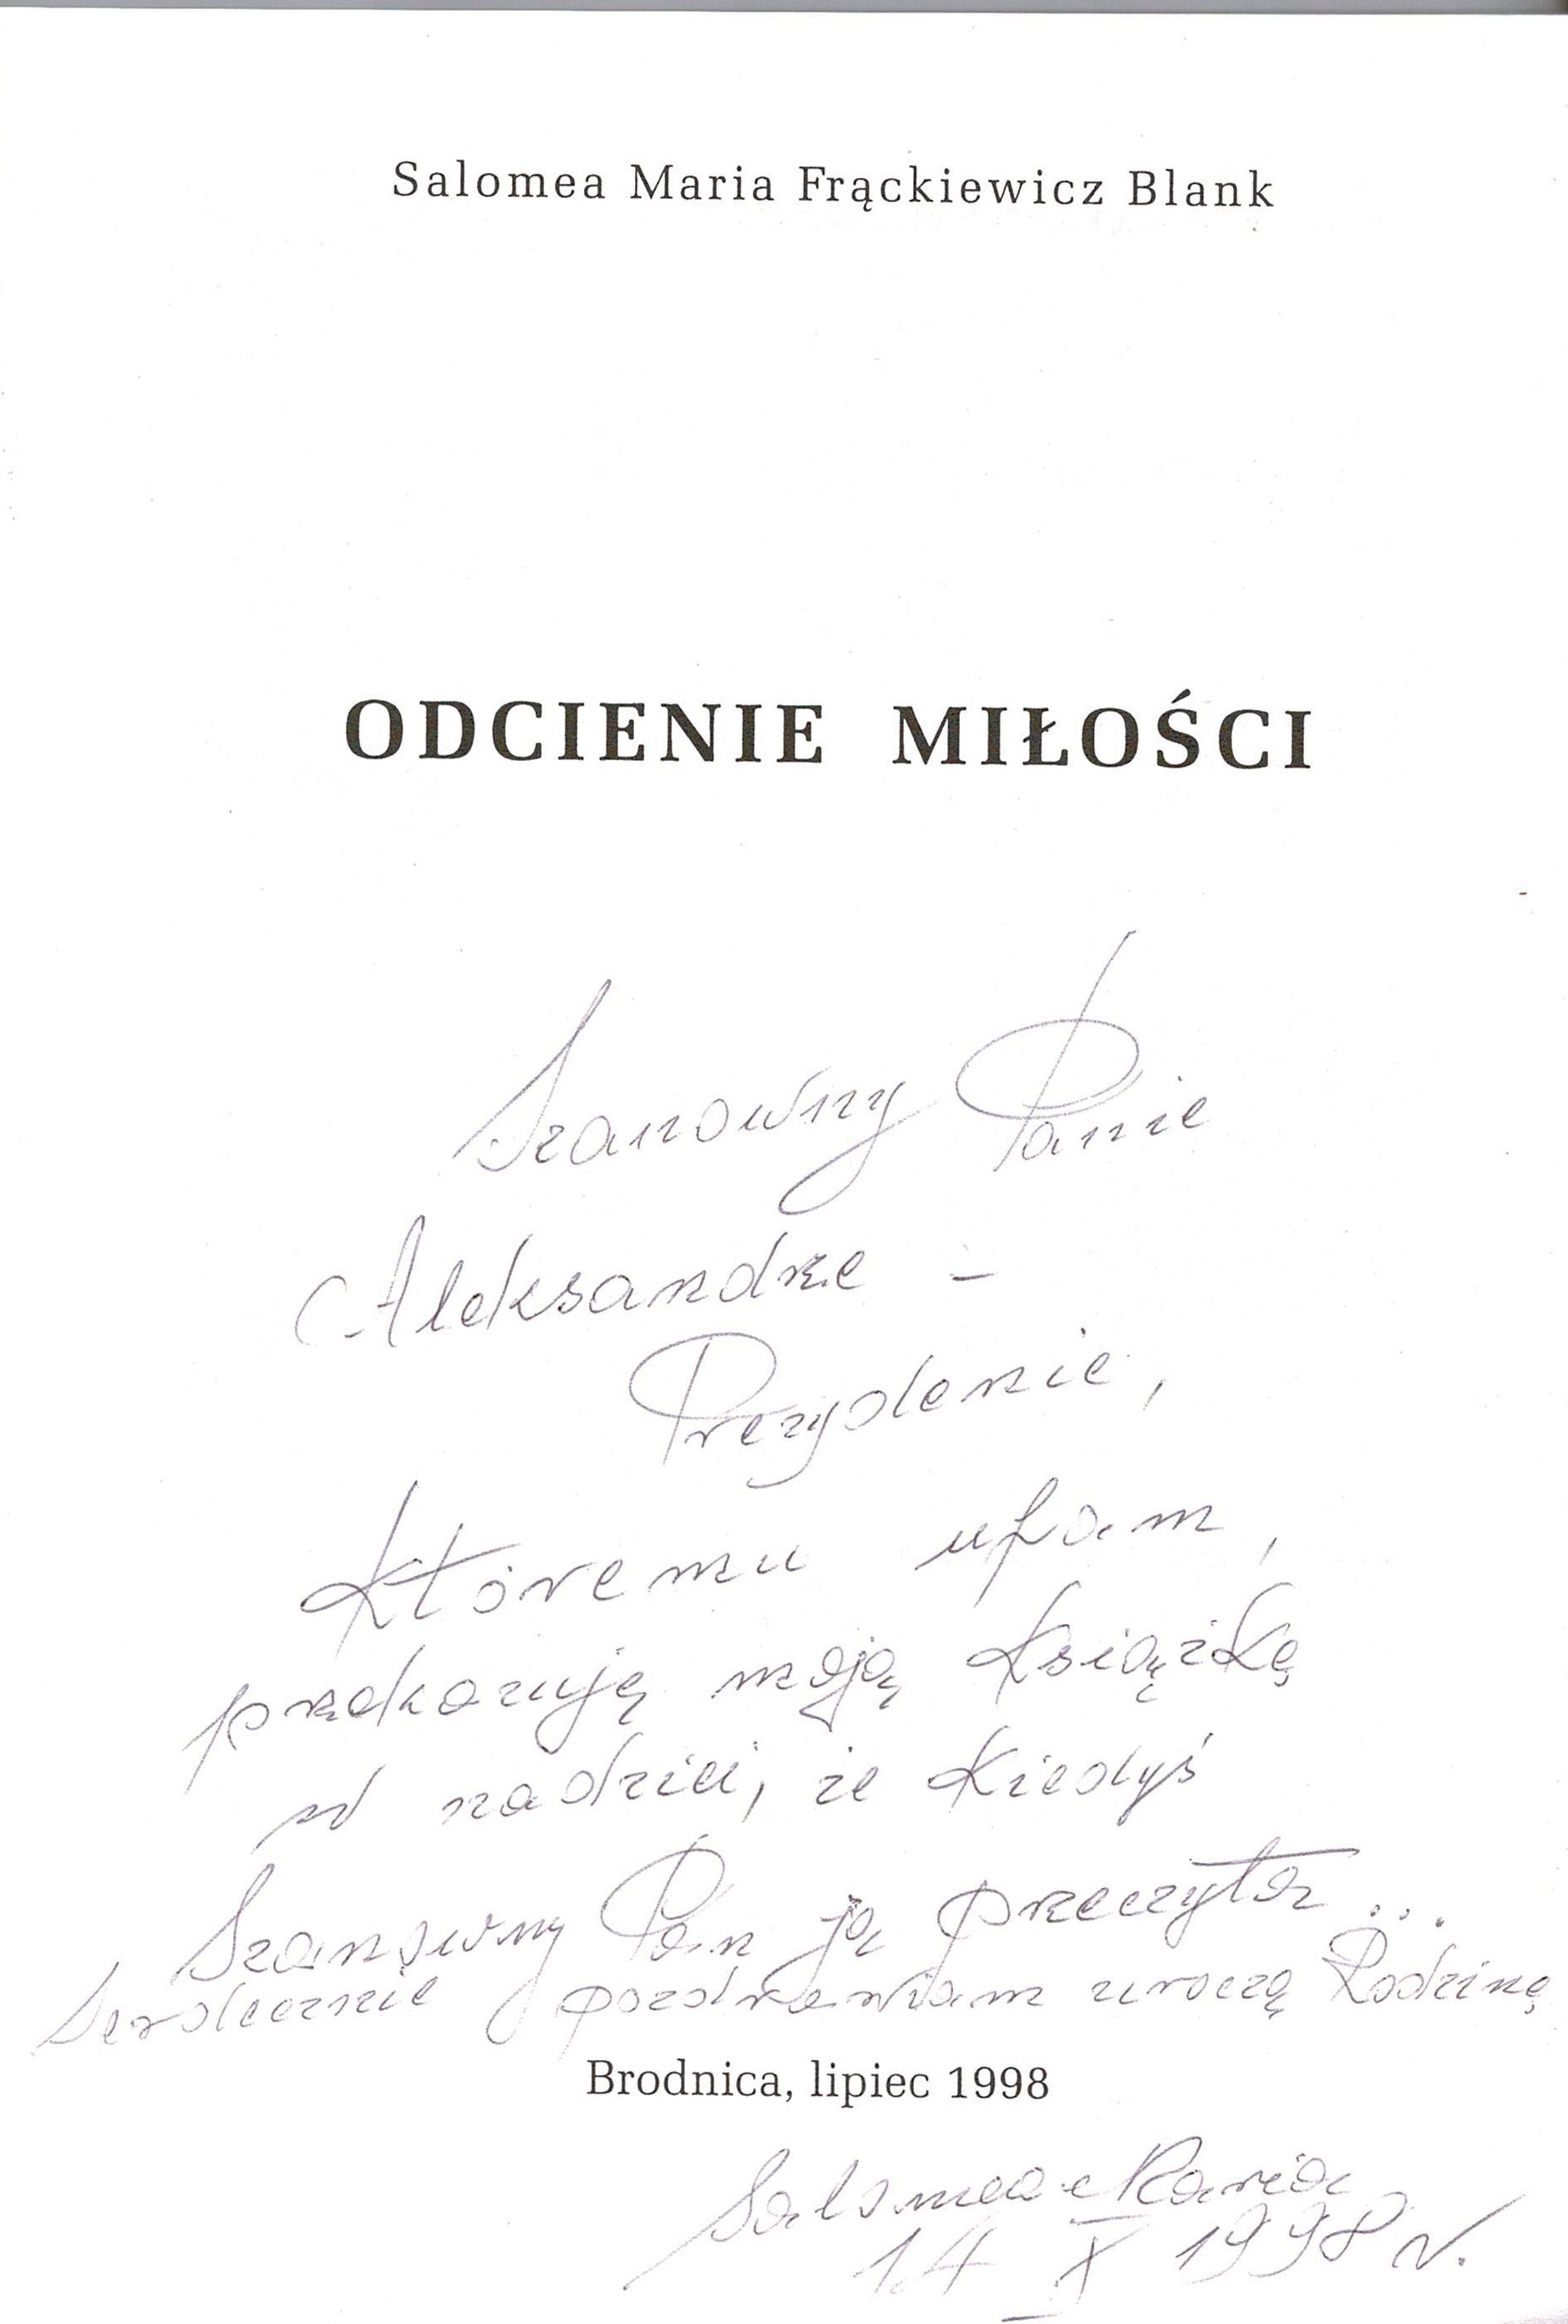 Salomea Maria Frąckiewicz Blank
ODCIENIE MIŁOŚCI
Szanowny Panie
Aleksandrze –
Prezydencie,
któremu ufam,
przekazuję moją książkę
w nadziei, że kiedyś
Szanowny Pan ją przeczyta...
Serdecznie pozdrawiam uroczą Rodzinę
Brodnica, lipiec 1998
Salomea Maria
14 X 1998 r.